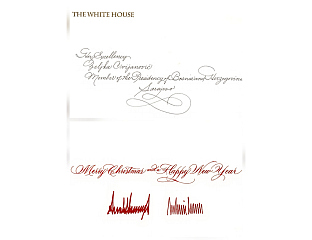 THE WHITE HOUSE
Her Excellency
Željka Cvijanović
Member of the Presidency of Bosnia and Herzegovina
Sarajevo
Merry Christmas and a Happy New Year